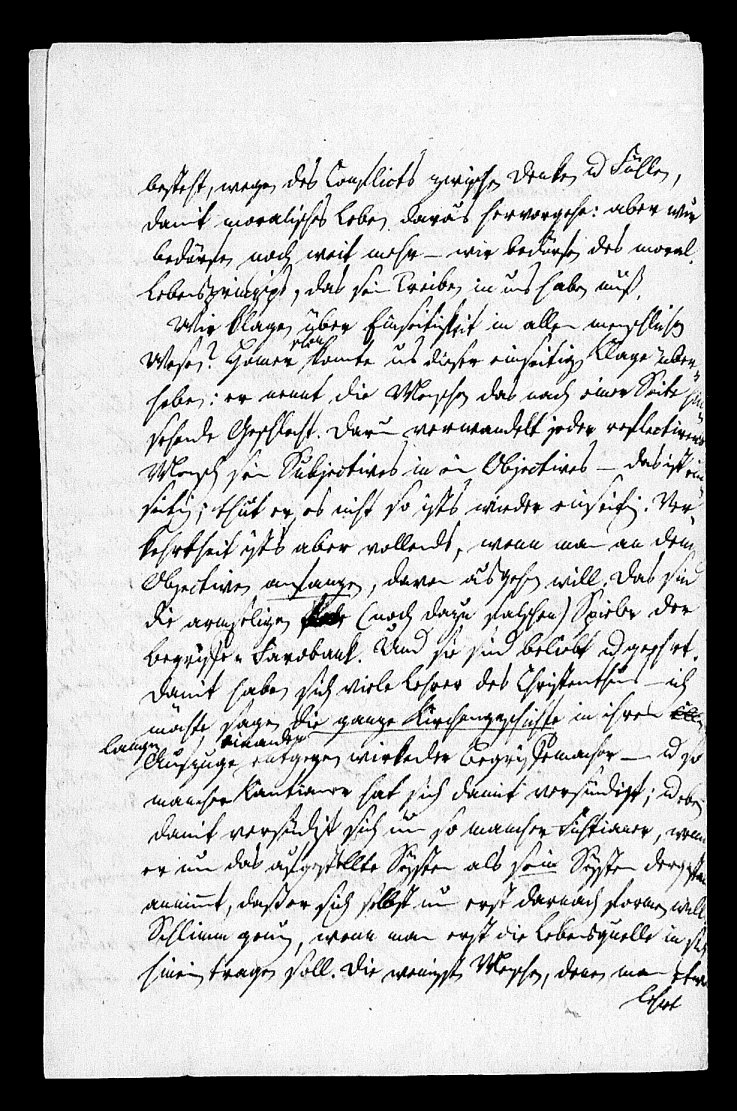 besteht, wegen des Conflicts zwischen Denken u Fühlen,
damit moralisches Leben daraus hervorgehe: aber wir
bedürfen noch weit mehr – wir bedürfen des moral.
Lebensprinzips, das sein Treiben in uns haben muß.
Wir klagen über Einseitigkeit in allen menschlichen
Wesen? Homer schon konnte uns dieser einseitigen Klage über-
heben: er nennt die Menschen das nach einer Seite hin
sehende Geschlecht. Darum verwandelt jeder reflectirende
Mensch sein Subjectives in ein Objectives – das ist ein
seitig; thut er es nicht so ists wieder einseitig. Ver
kehrtheit ists aber vollends, wenn man an dem
Objectiven anfangen, davon ausgehen will. Das sind
die armseligen (noch dazu falschen) Spieler der
Begriffen Farobank. Und sie sind beliebt u geehrt.
Damit haben sich viele Lehrer des Christenthums – ich
möchte sagen die ganze Kirchengeschichte in ihrem
langen Auszuge einander entgegen wirkender Begriffemacher – u so
mancher Kantianer hat sich damit versündigt; u eben
damit versündigt sich nun so mancher Fichtianer, wenn
er nun das aufgestellte System als sein System dergestalt
annimmt, daß er sich selbst nun erst darnach formen will.
Schlimm genug, wenn man erst die Lebensquelle in sich
hinein tragen soll. Die wenigsten Menschen, denen man etwas
lehrt